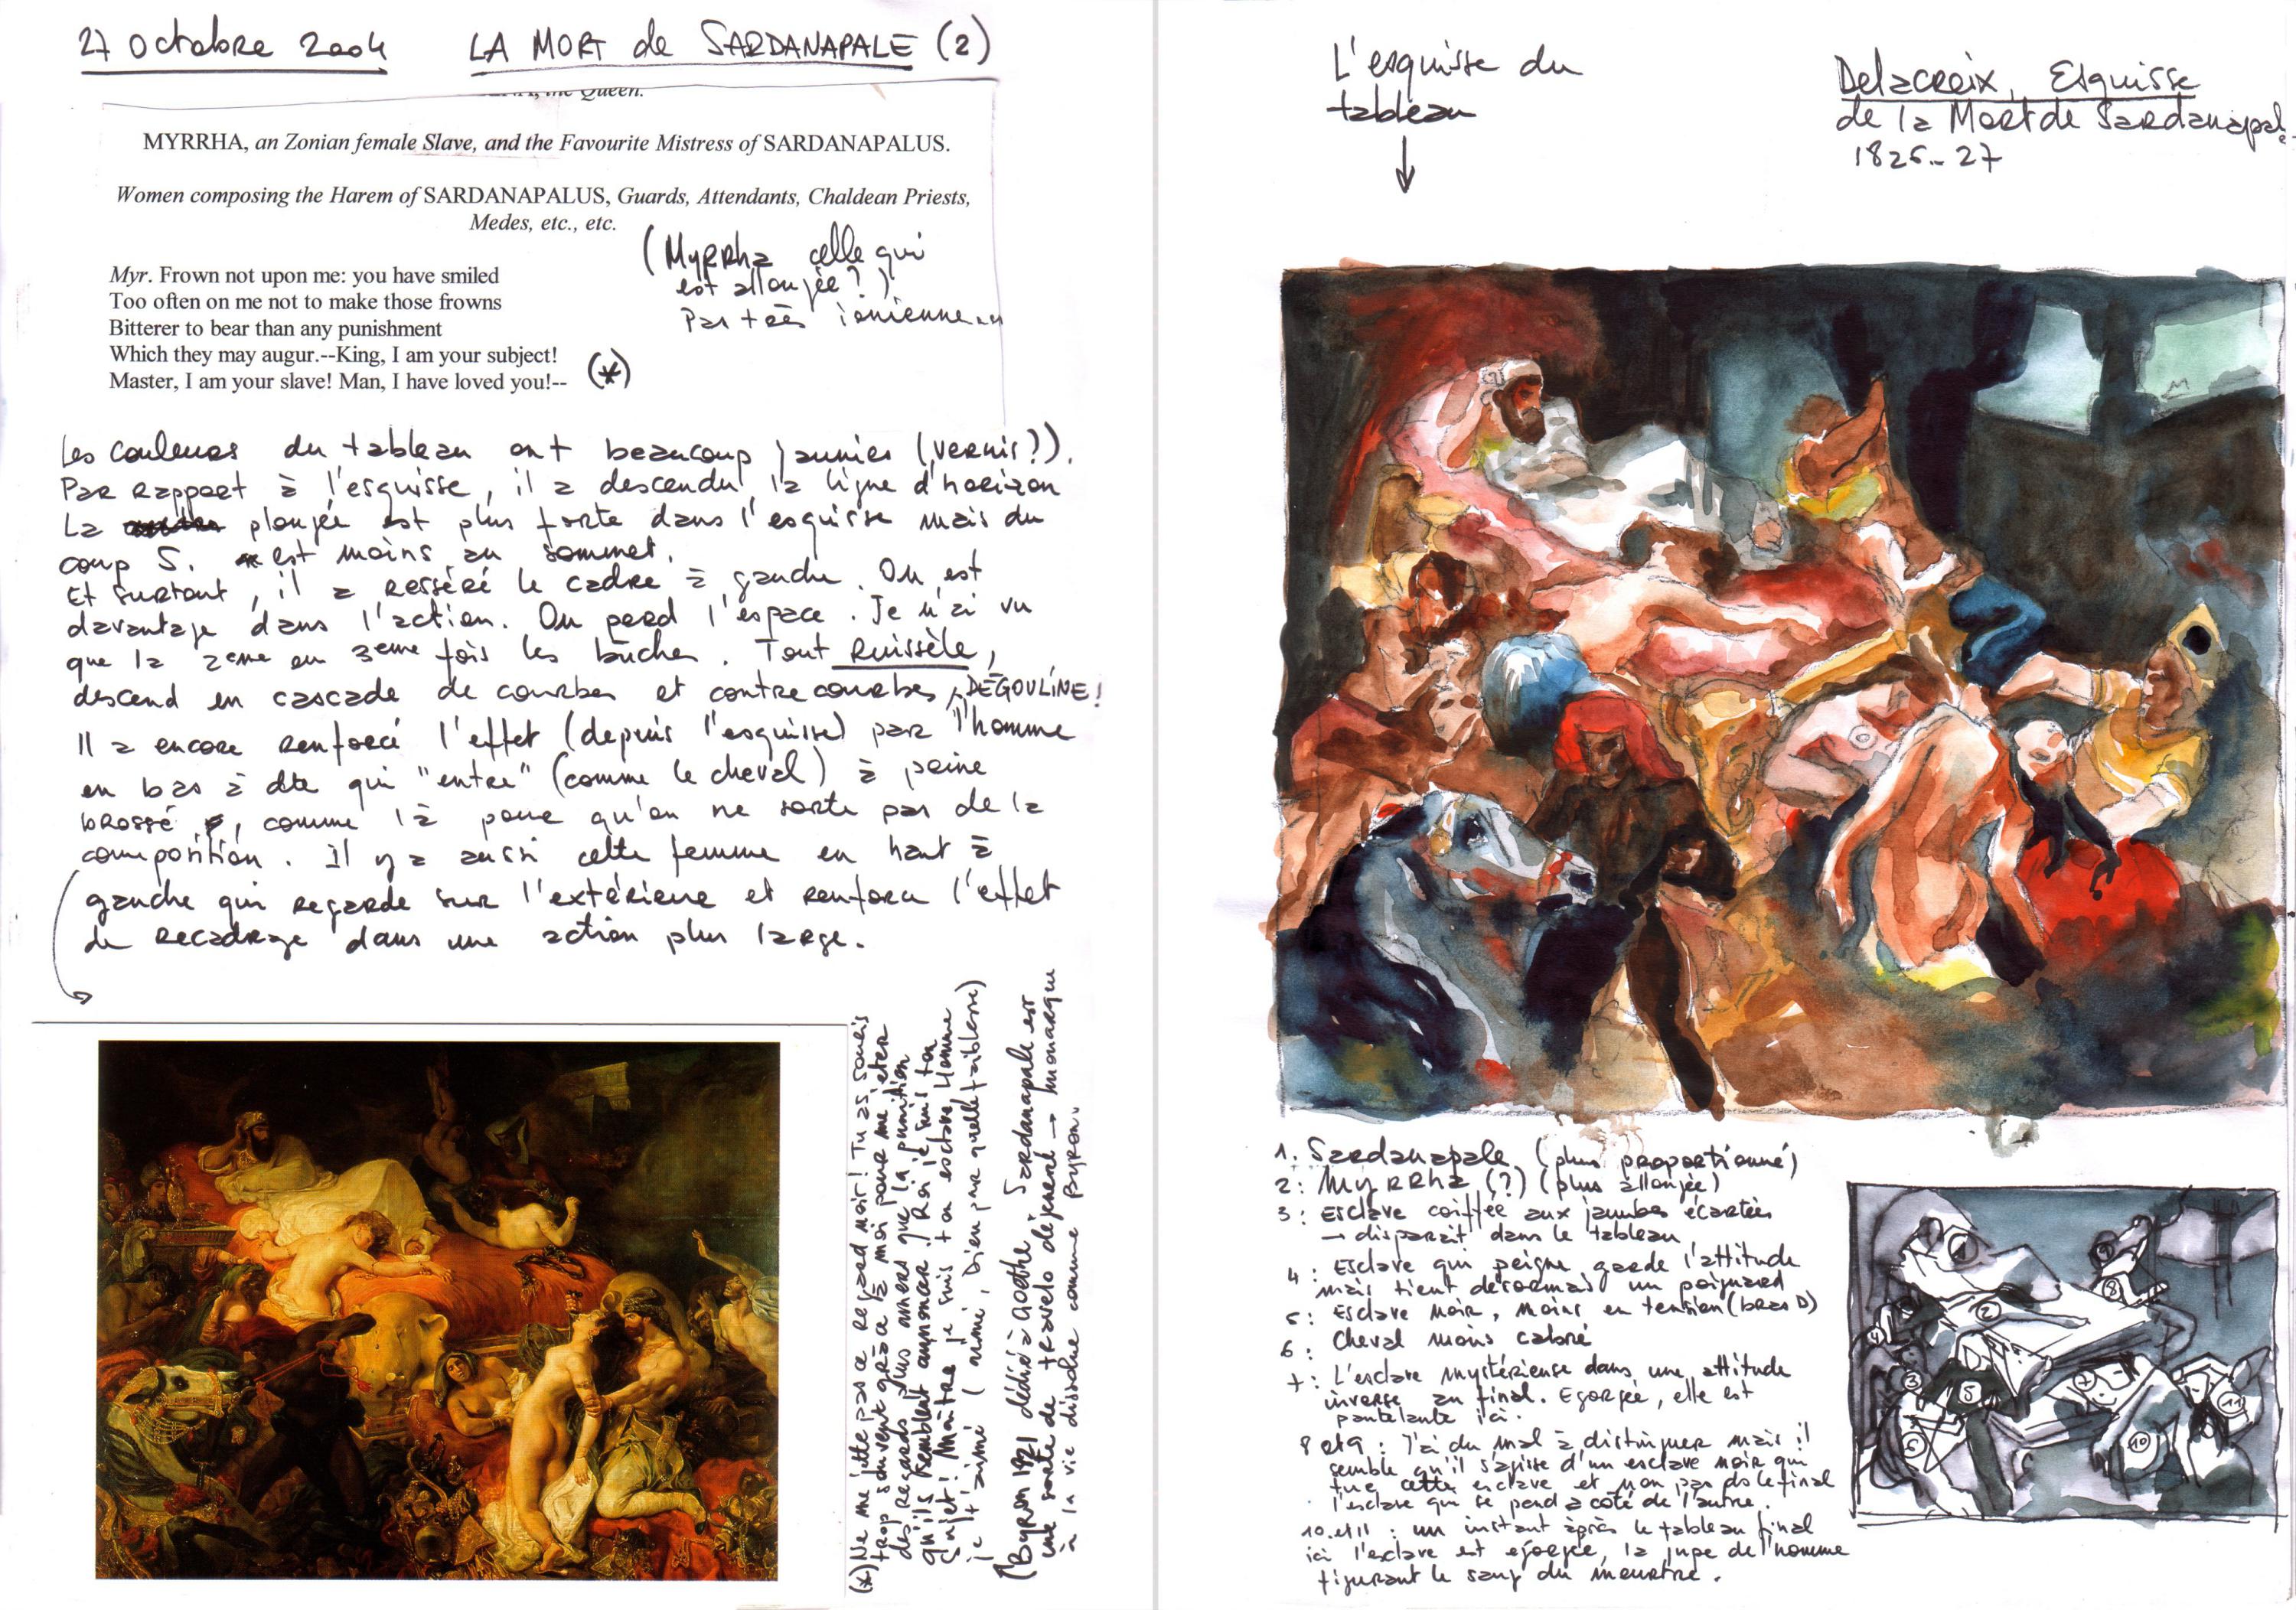 27 octobre 2004 LA MORT de SARDANAPALE (2)
the Queen.
MYRRHA, an Zonian female Slave, and the Favourite Mistress of SARDANAPALUS.
Women composing the Harem of SARDANAPALUS, Guards, Attendants, Chaldean Priests,
Medes, etc., etc.
(Myrrha celle qui
est allongée?)
Pas très ionienne...
Myr. Frown not upon me: you have smiled
Too often on me not to make those frowns
Bitterer to bear than any punishment
Which they may augur.--King, I am your subject!
Master, I am your slave! Man, I have loved you!-- (*)
Les couleurs du tableau ont beaucoup jaunies (vernis?).
Par rapport à l'esquisse, il a descendu la ligne d'horizon
La plongée est plus forte dans l'esquisse mais du
coup S. est moins au sommet.
Et surtout, il a resséré le cadre à gauche. On est
davantage dans l'action. On perd l'espace. Je n'ai vu
que la 2eme ou 3eme fois les bûches. Tout ruissèle,
descend en cascade de courbes et contrecourbes, DÉGOULINE!
Il a encore renforcé l'effet (depuis l'esquisse) par l'homme
en bas à dte qui "entre" (comme le cheval) à peine
brossé, comme là pour qu'on ne sorte pas de la
composition. Il y a aussi cette femme en haut à
gauche qui regarde sur l'extérieur et renforce l'effet
de recadrage dans une action plus large.
(*) Ne me jette pas ce regard noir! Tu as souris
trop souvent grâce à moi pour me jeter
des regards plus amers que la punition
qu'ils semblent annoncer! Roi je suis ton
Sujet! Maître je suis ton esclave, Homme
je t'ai aimé (aimé, bien par quelle faiblesse)
(Byron 1821 dédié à Goethe. Sardanapale est
une sorte de travelo dégénéré → monarque
à la vie dissolue comme Byron.
L'esquisse du
tableau
↓
Delacroix, Esquisse
de la Mort de Sardanapale
1826-27
1. Sardanapale (plus proportionné)
2: Myrrha (?) (plus allongée)
3: Esclave coiffée aux jambes écartées
→ disparait dans le tableau
4: Esclave qui peigne garde l'attitude
mais tient désormais un poignard
5: Esclave noir, moins en tension (bras D)
6: Cheval moins cabré
7: L'esclave mystérieuse dans une attitude
inverse au final. Egorgée, elle est
pantelante ici.
8 et 9: J'ai du mal à distinguer mais il
semble qu'il s'agisse d'un esclave noir qui
tue cette esclave et non pas ds le final
l'esclave qui se pend à coté de l'autre.
10 et 11: un instant après le tableau final
ici l'esclave est egorgée, la jupe de l'homme
figurant le sang du meurtre.
9
8
2
4
3
5
7
11
6
10